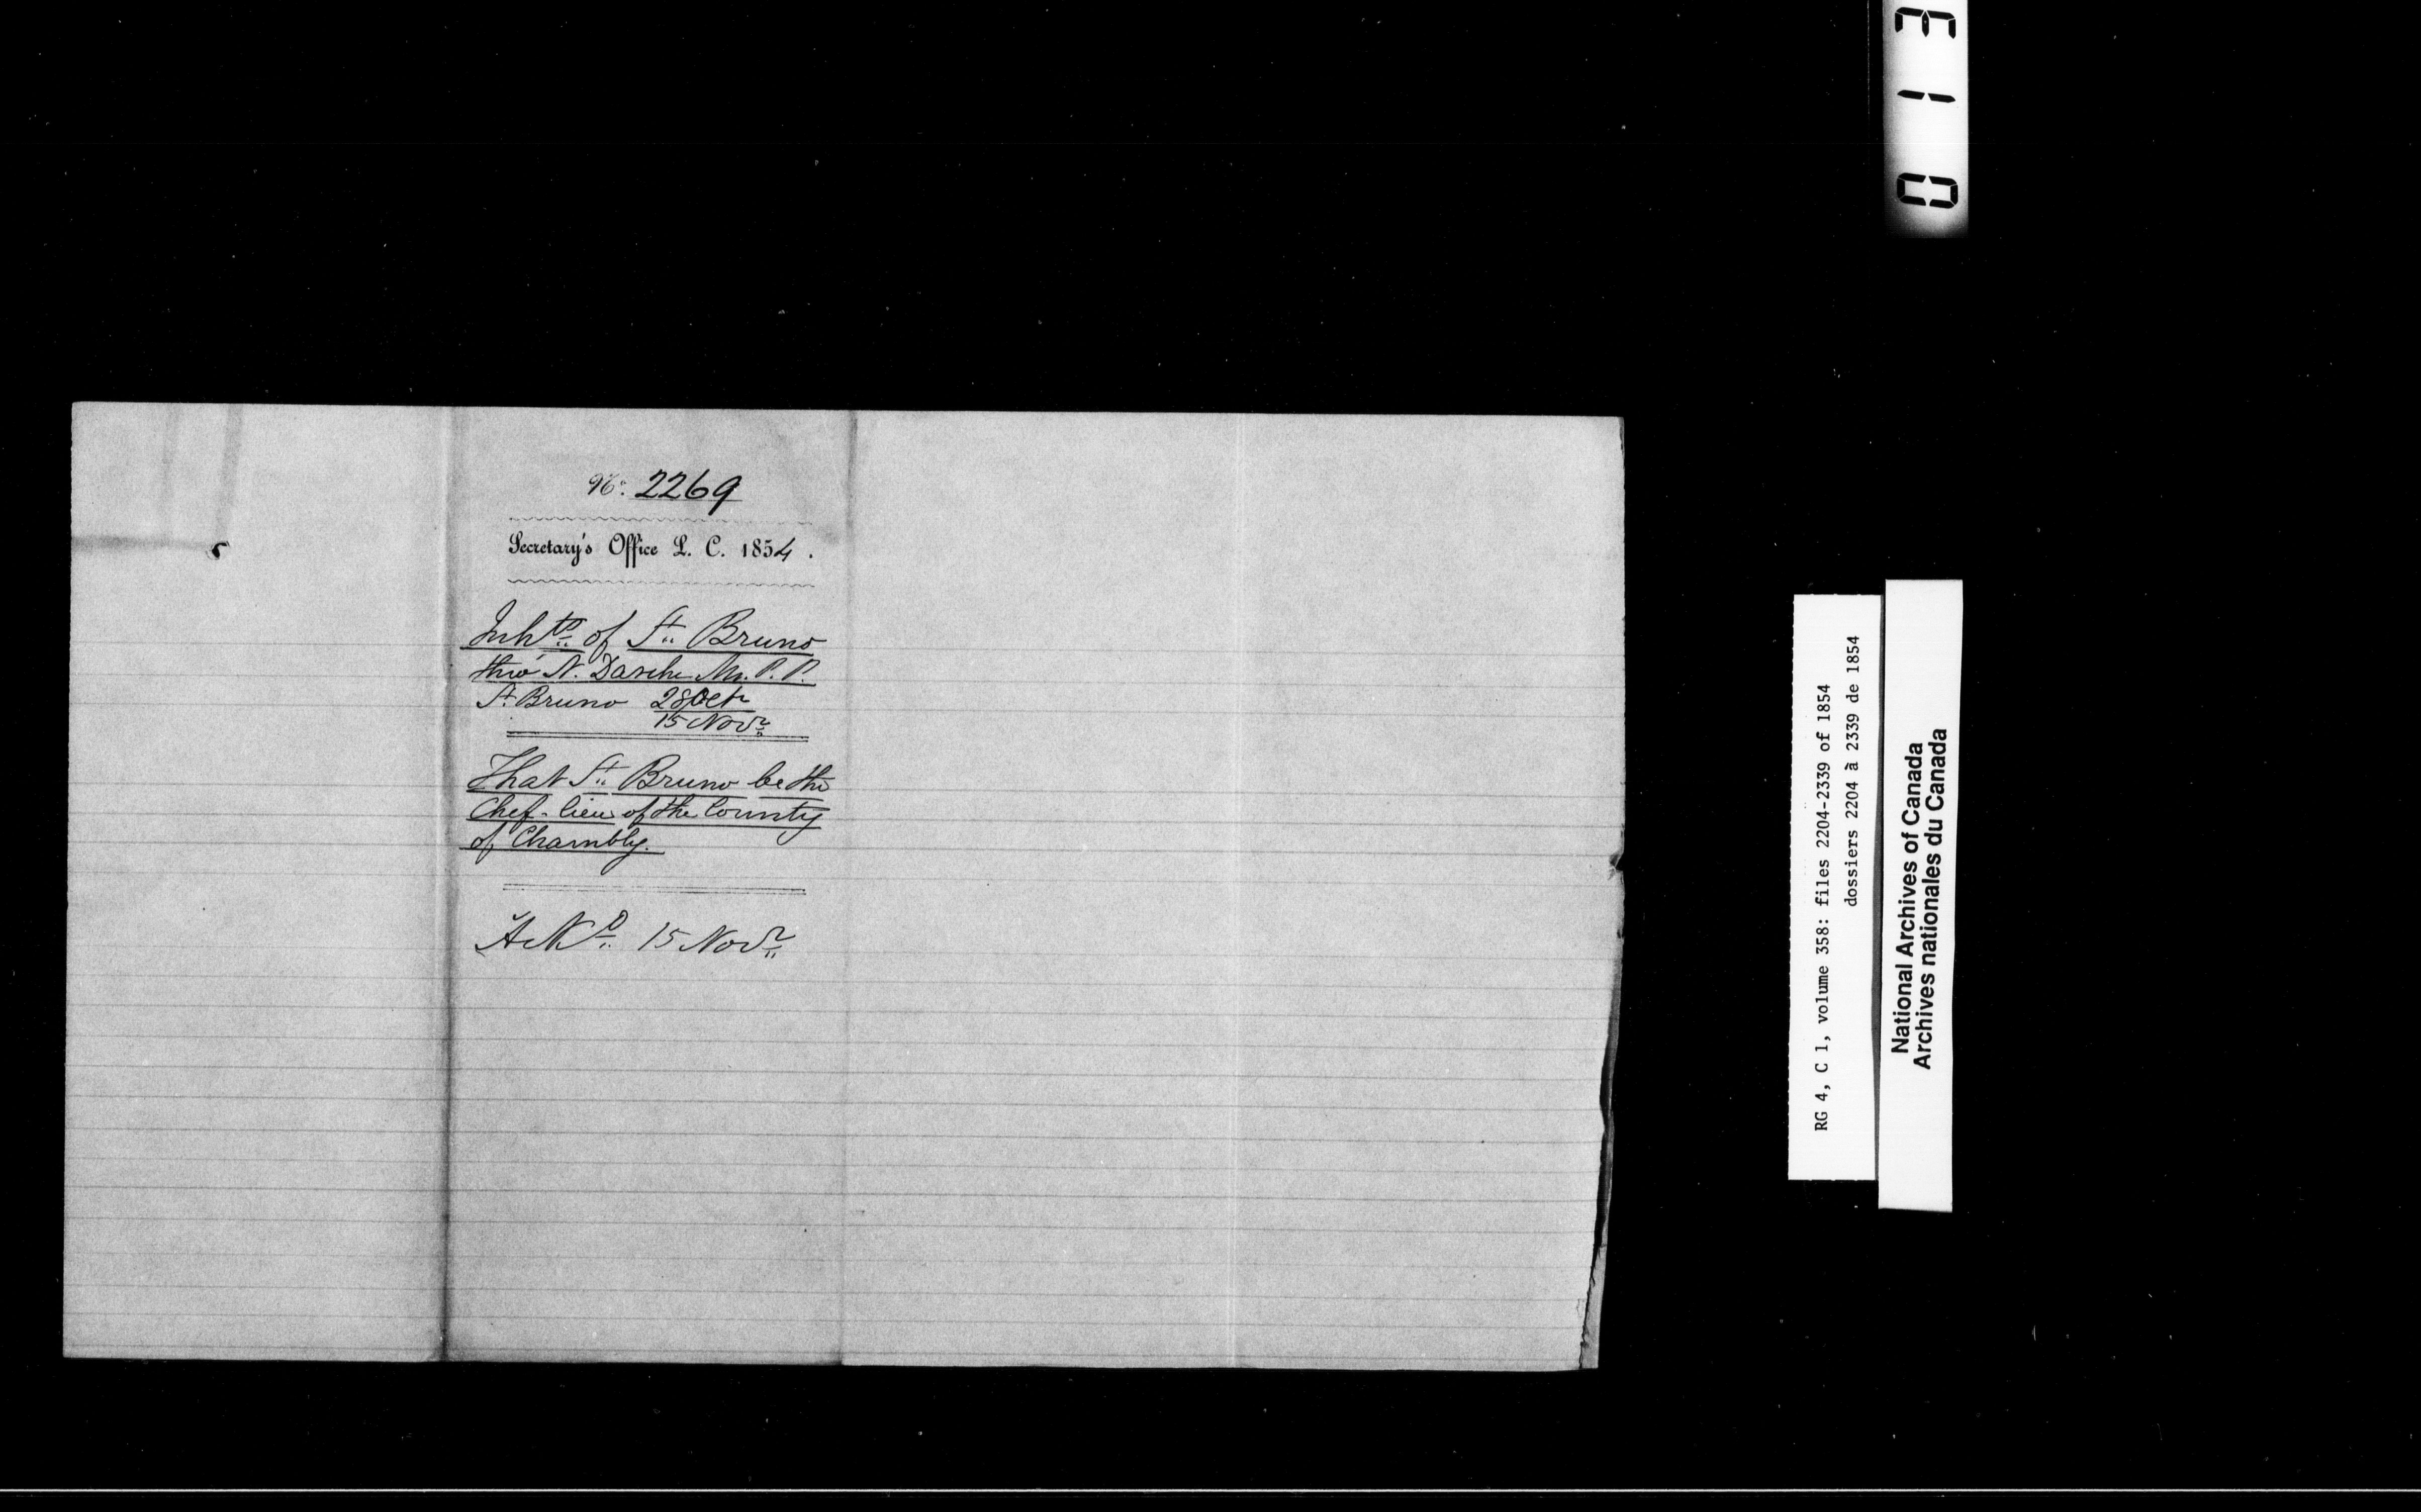 No. 2269
Secretary's Office L. C. 1854.
Inhts of St. Bruno
thro' N. Darche M. P. P.
St. Bruno 28 Octr
15 Novr
That St. Bruno be the
Chef-lieu of the County
of Chambly.
AckD 15 Novr
013
RG 4, C 1, volume 358: files 2204-2339 of 1854
dossiers 2204 à 2339 de 1854
National Archives of Canada
Archives nationales du Canada